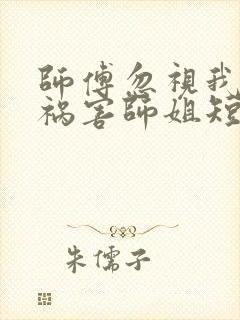 師傅忽視我
禍害師姐短
朱儒子